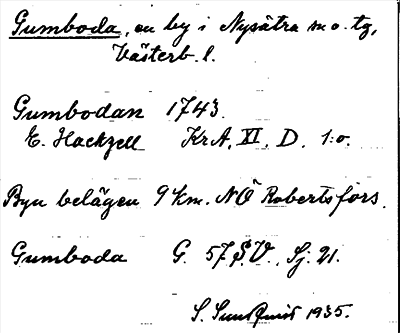 Gumboda, en by i Nysätra sn o. tg,
Västerb. l.
Gumbodan 1743.
E. Hackzell KrA, XI. D. 1:o.
Byn belägen 9 km. NÖ Robertsfors.
Gumboda G. 57 S.V., Sj. 21.
S. 1935.